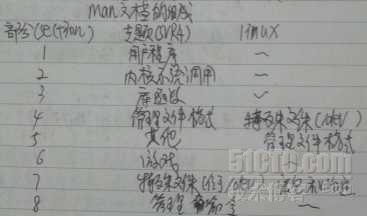 man文档的组成
部分(section) 主题(SVR4) linux
1 用户程序 ~
2 内核系统调用 ~
3 库函数 ~
4 管理文件格式 特殊文件(/dev)
5 其他 管理文件格式
6 游戏
7 特殊文件(位于/dev)
8 管理命令 ~
51CTO.com